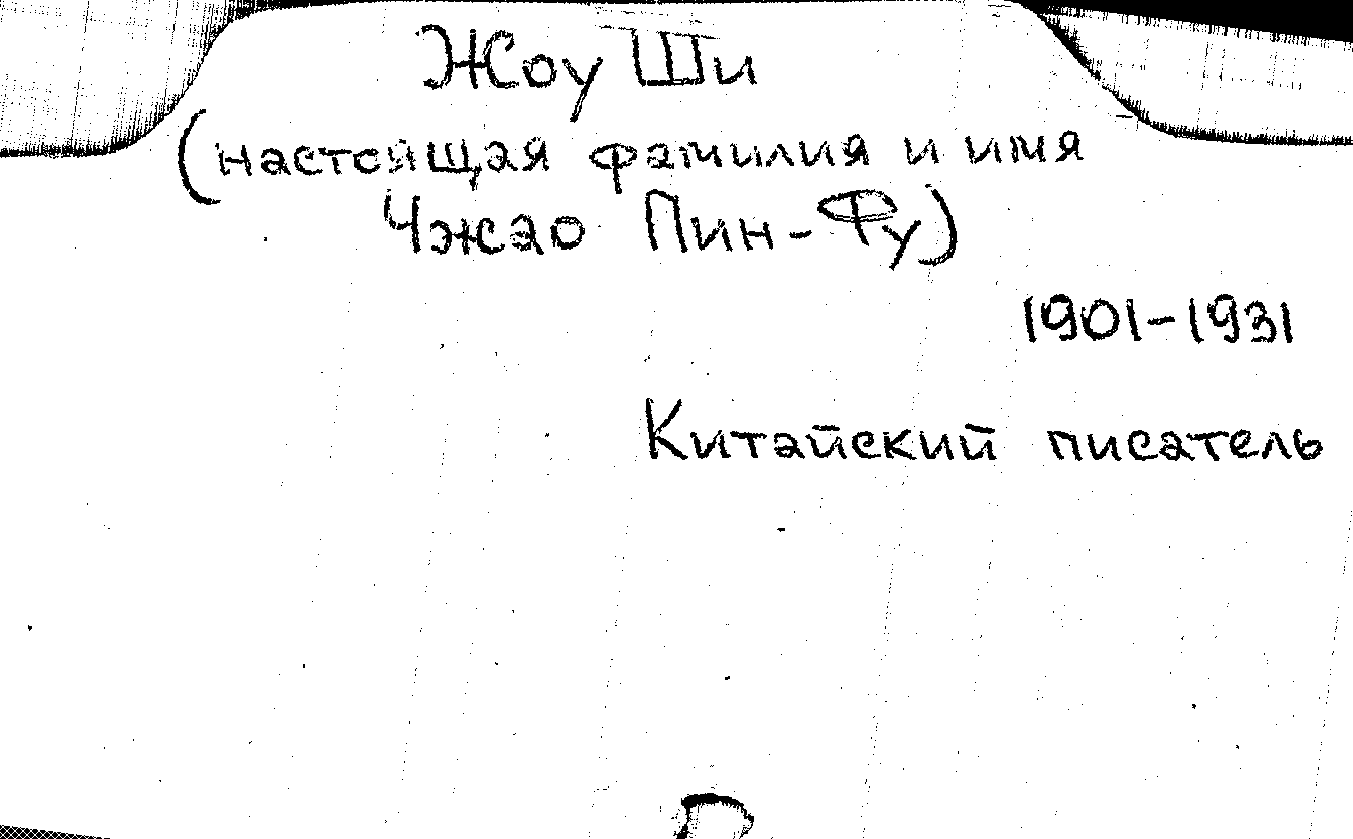 Жоу Ши
(настоящая фамилия и имя
Чжао Пин-Фу)
1901-1931
Китайский писатель